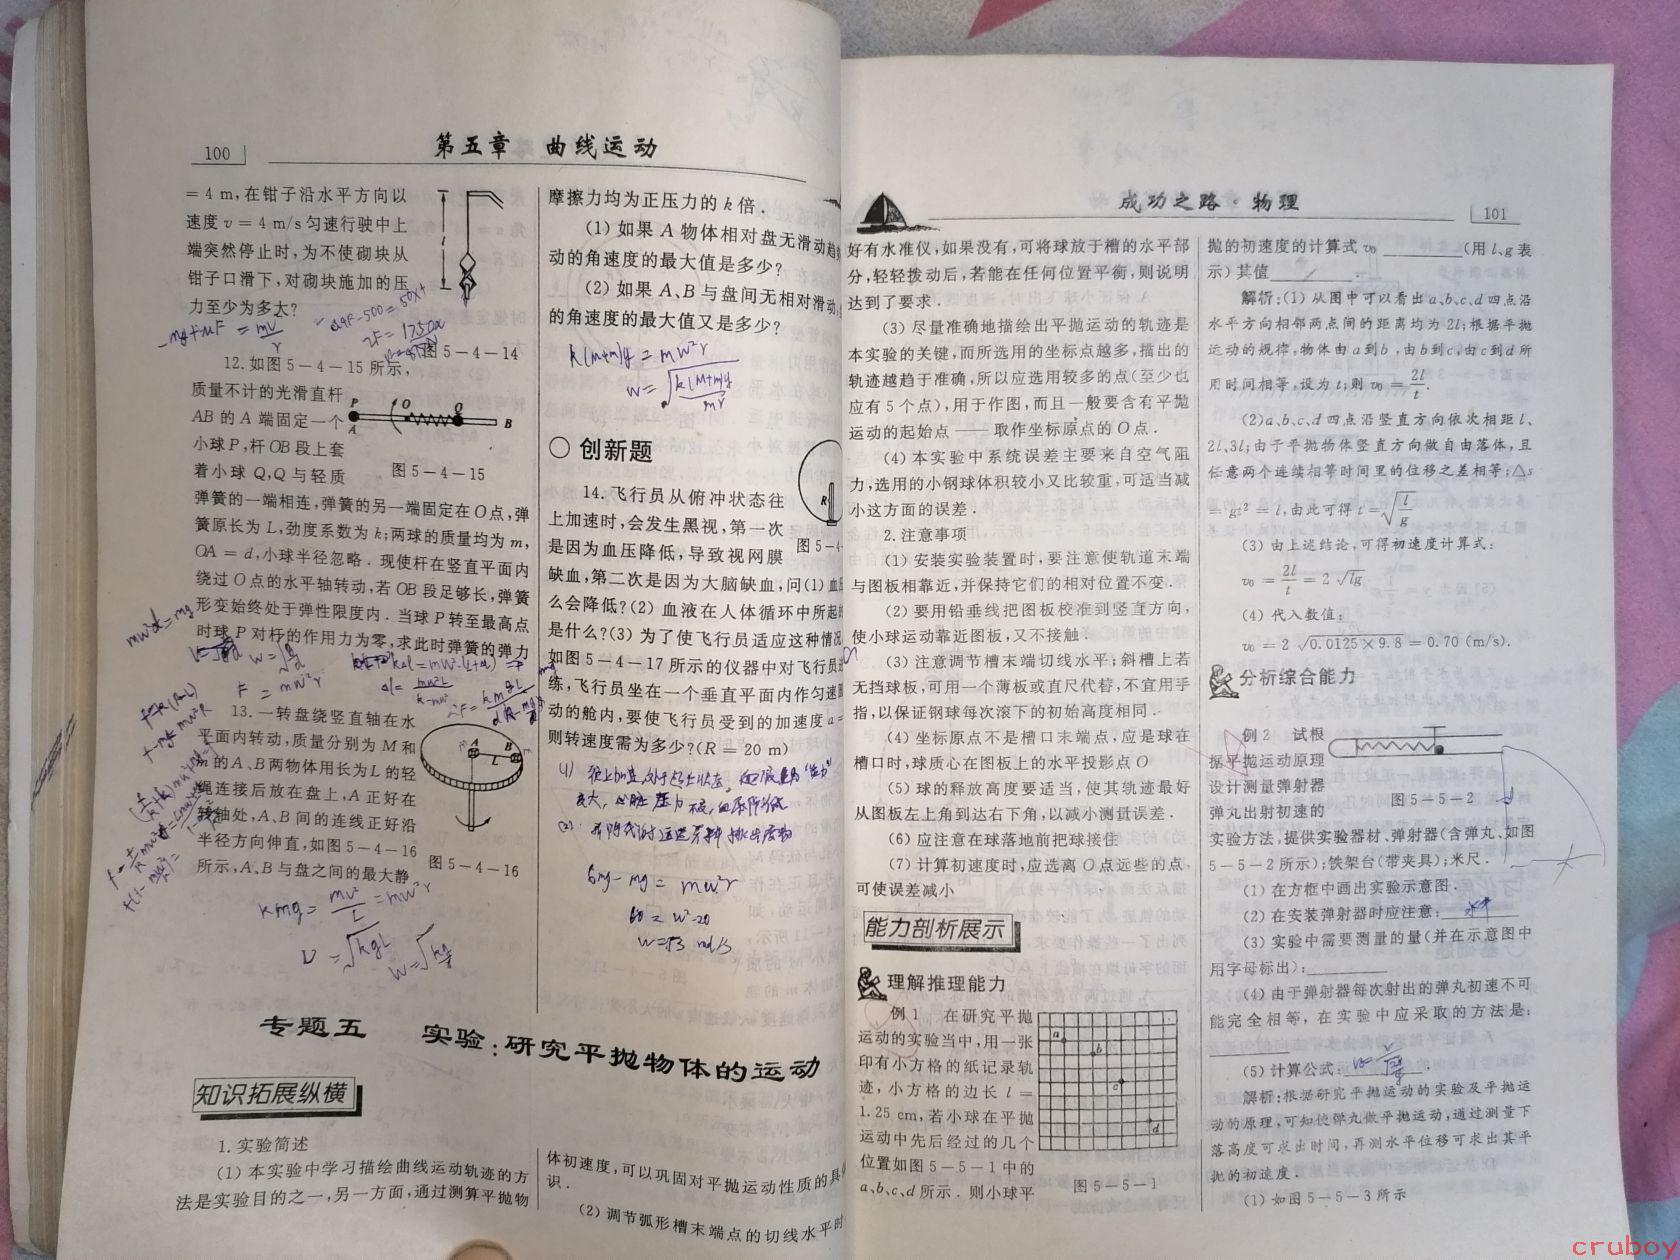 100
第五章 曲线运动
= 4 m,在钳子沿水平方向以
速度 v = 4 m/s 匀速行驶中上
端突然停止时,为不使砌块从
钳子口滑下,对砌块施加的压
力至少为多大?
图 5-4-14
12.如图 5-4-15 所示,
质量不计的光滑直杆
AB 的 A 端固定一个
小球 P,杆 OB 段上套
着小球 Q,Q 与轻质
P
O
Q
A
B
图 5-4-15
弹簧的一端相连,弹簧的另一端固定在 O 点,弹
簧原长为 L,劲度系数为 k;两球的质量均为 m,
OA = d,小球半径忽略.现使杆在竖直平面内
绕过 O 点的水平轴转动,若 OB 段足够长,弹簧
形变始终处于弹性限度内.当球 P 转至最高点
时球 P 对杆的作用力为零,求此时弹簧的弹力
mω²d=mg
F = mω²r
13.一转盘绕竖直轴在水
平面内转动,质量分别为 M 和
m 的 A、B 两物体用长为 L 的轻
绳连接后放在盘上,A 正好在
转轴处,A、B 间的连线正好沿
半径方向伸直,如图 5-4-16
所示,A、B 与盘之间的最大静
A
B
L
图 5-4-16
摩擦力均为正压力的 k 倍.
(1) 如果 A 物体相对盘无滑动趋
动的角速度的最大值是多少?
(2) 如果 A、B 与盘间无相对滑动,
的角速度的最大值又是多少?
k(M+m)g = mω²r
创新题
14.飞行员从俯冲状态往
上加速时,会发生黑视,第一次
是因为血压降低,导致视网膜
缺血,第二次是因为大脑缺血,问(1)血
么会降低?(2) 血液在人体循环中所起
是什么?(3) 为了使飞行员适应这种情况
如图 5-4-17 所示的仪器中对飞行员进
练,飞行员坐在一个垂直平面内作匀速
动的舱内,要使飞行员受到的加速度 a =
则转速度需为多少?(R = 20 m)
R
图 5-4
6mg - mg = mω²r
专题五 实验:研究平抛物体的运动
知识拓展纵横
1.实验简述
(1) 本实验中学习描绘曲线运动轨迹的方
法是实验目的之一,另一方面,通过测算平抛物
体初速度,可以巩固对平抛运动性质的具
识.
(2) 调节弧形槽末端点的切线水平时
成功之路·物理
101
好有水准仪,如果没有,可将球放于槽的水平部
分,轻轻拨动后,若能在任何位置平衡,则说明
达到了要求.
(3) 尽量准确地描绘出平抛运动的轨迹是
本实验的关键,而所选用的坐标点越多,描出的
轨迹越趋于准确,所以应选用较多的点(至少也
应有 5 个点),用于作图,而且一般要含有平抛
运动的起始点 —— 取作坐标原点的 O 点.
(4) 本实验中系统误差主要来自空气阻
力,选用的小钢球体积较小又比较重,可适当减
小这方面的误差.
2.注意事项
(1) 安装实验装置时,要注意使轨道末端
与图板相靠近,并保持它们的相对位置不变.
(2) 要用铅垂线把图板校准到竖直方向,
使小球运动靠近图板,又不接触.
(3) 注意调节槽末端切线水平;斜槽上若
无挡球板,可用一个薄板或直尺代替,不宜用手
指,以保证钢球每次滚下的初始高度相同.
(4) 坐标原点不是槽口末端点,应是球在
槽口时,球质心在图板上的水平投影点 O
(5) 球的释放高度要适当,使其轨迹最好
从图板左上角到达右下角,以减小测量误差.
(6) 应注意在球落地前把球接住
(7) 计算初速度时,应选离 O 点远些的点,
可使误差减小
能力剖析展示
理解推理能力
例 1 在研究平抛
运动的实验当中,用一张
印有小方格的纸记录轨
迹,小方格的边长 l =
1.25 cm,若小球在平抛
运动中先后经过的几个
位置如图 5-5-1 中的
a、b、c、d 所示.则小球平
a
b
c
d
图 5-5-1
抛的初速度的计算式 v₀ ________ (用 l、g 表
示) 其值 ________ .
解析:(1) 从图中可以看出 a、b、c、d 四点沿
水平方向相邻两点间的距离均为 2l;根据平抛
运动的规律,物体由 a 到 b,由 b 到 c,由 c 到 d 所
用时间相等,设为 t;则 v₀ = 2l/t.
(2) a、b、c、d 四点沿竖直方向依次相距 l、
2l、3l;由于平抛物体竖直方向做自由落体,且
任意两个连续相等时间里的位移之差相等;△s
= gt² = l,由此可得 t = √(l/g)
(3) 由上述结论,可得初速度计算式:
v₀ = 2l/t = 2√(lg)
(4) 代入数值:
v₀ = 2√(0.0125×9.8) = 0.70 (m/s).
分析综合能力
例 2 试根
据平抛运动原理
设计测量弹射器
弹丸出射初速的
图 5-5-2
实验方法,提供实验器材、弹射器(含弹丸、如图
5-5-2 所示);铁架台(带夹具);米尺.
(1) 在方框中画出实验示意图.
(2) 在安装弹射器时应注意: 水平
(3) 实验中需要测量的量(并在示意图中
用字母标出): ________
(4) 由于弹射器每次射出的弹丸初速不可
能完全相等,在实验中应采取的方法是:
________ .
(5) 计算公式: ________ .
解析:根据研究平抛运动的实验及平抛运
动的原理,可知使弹丸做平抛运动,通过测量下
落高度可求出时间,再测水平位移可求出其平
抛的初速度.
(1) 如图 5-5-3 所示
cruboy